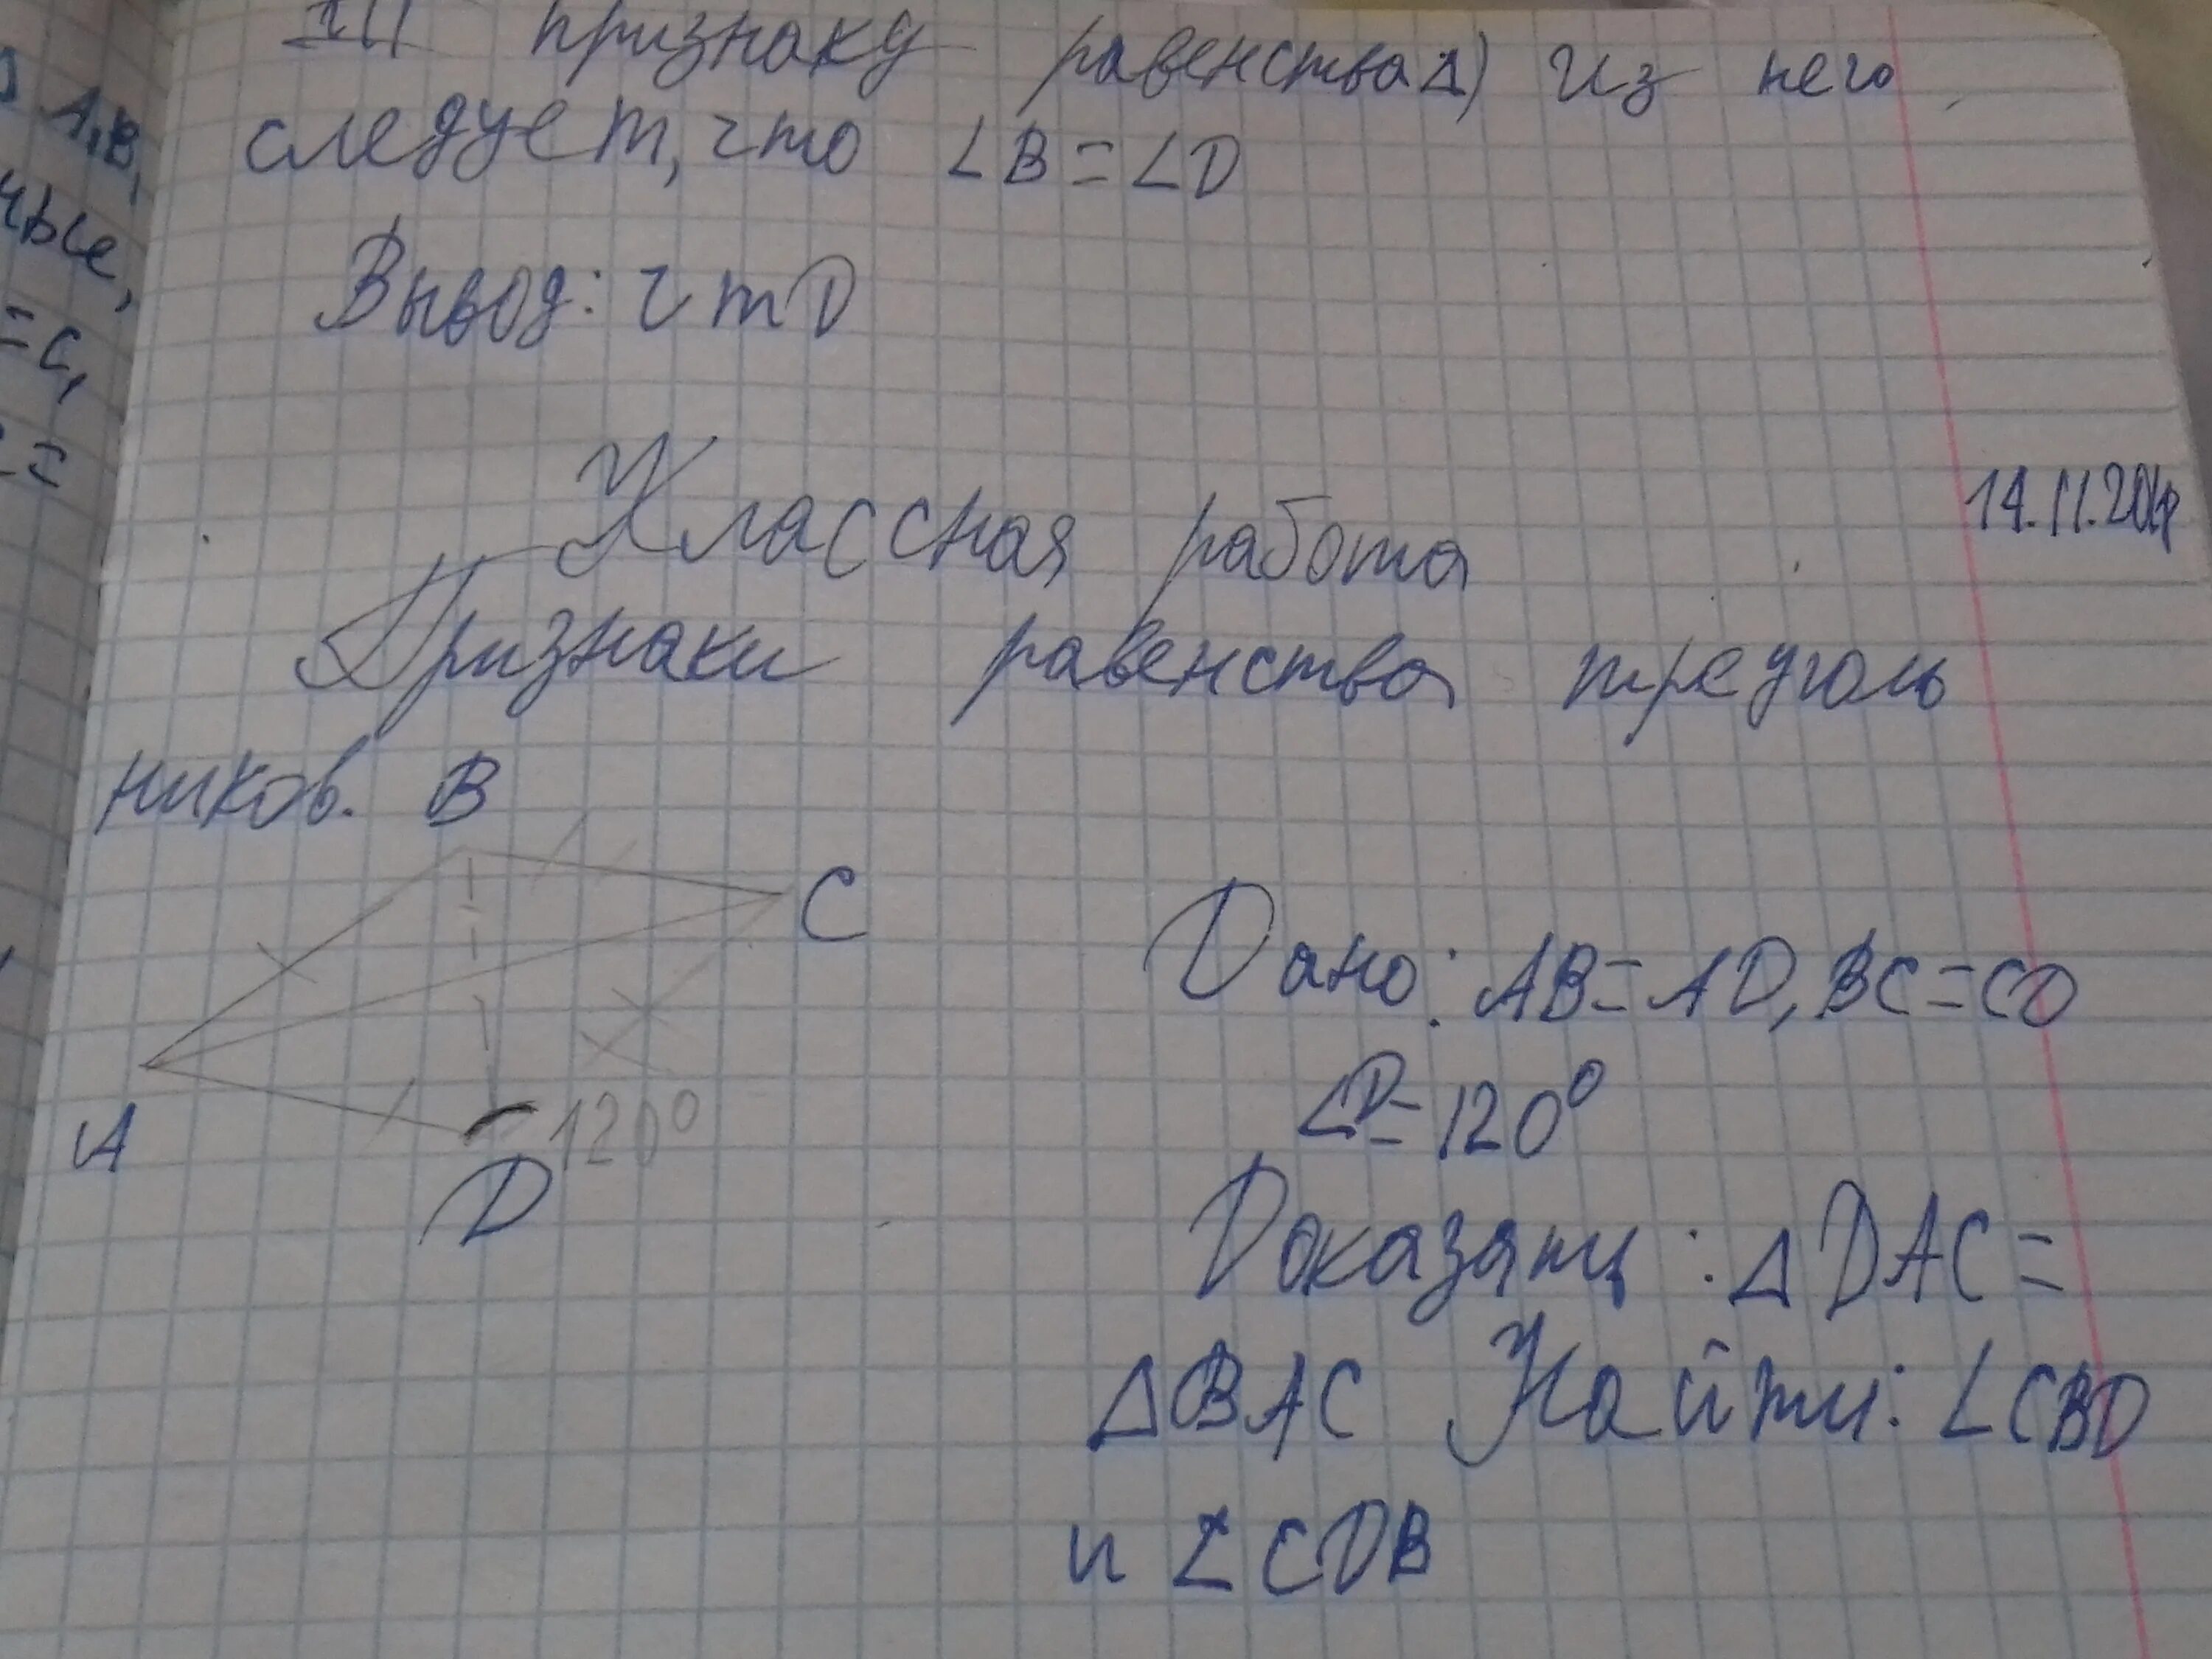 III признаку равенства Δ) Из него
следует, что ∠B = ∠D
Вывод: чтD
Классная работа
14.11.201
Признаки равенства треуголь
ников.
B
C
A
D
120°
Дано: AB = AD, BC = CD
∠D = 120°
Доказать: Δ DAC =
Δ BAC Найти: ∠CBD
и ∠CDB
A,B,
=C,